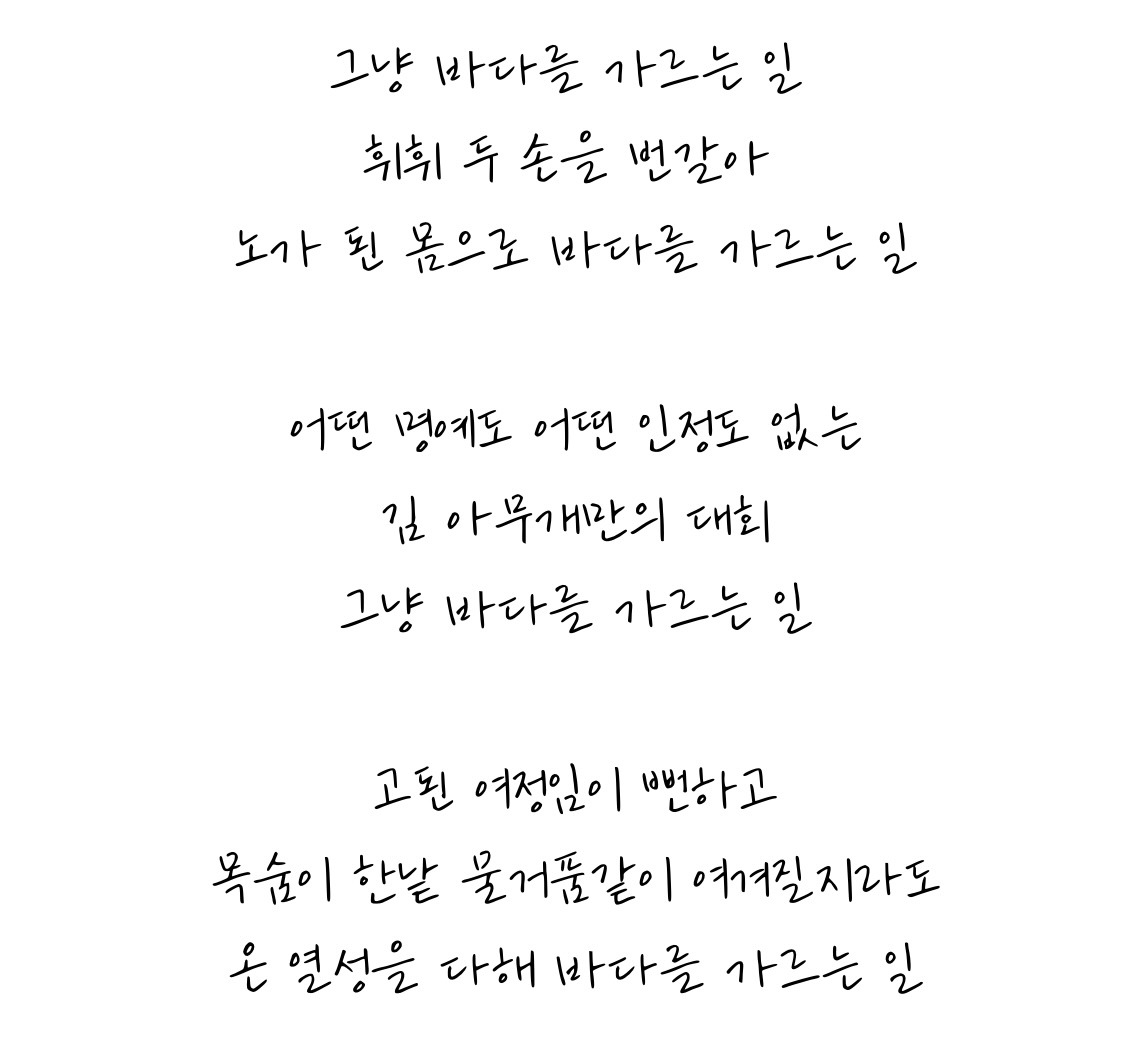 그냥 바다를 가르는 일
휘휘 두 손을 번갈아
노가 된 몸으로 바다를 가르는 일
어떤 명예도 어떤 인정도 없는
김 아무개만의 대회
그냥 바다를 가르는 일
고된 여정임이 뻔하고
목숨이 한낱 물거품같이 여겨질지라도
온 열성을 다해 바다를 가르는 일